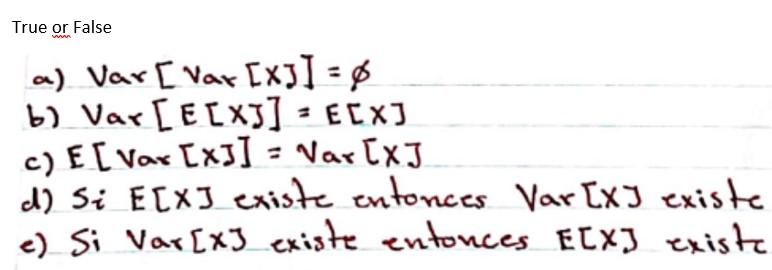 True or False
a) Var [ Var [X]] = ø
b) Var [E[X]] = E[X]
c) E[Var [X]] = Var [X]
d) Si E[X] existe entonces Var [X] existe
e) Si Var [X] existe entonces E[X] existe